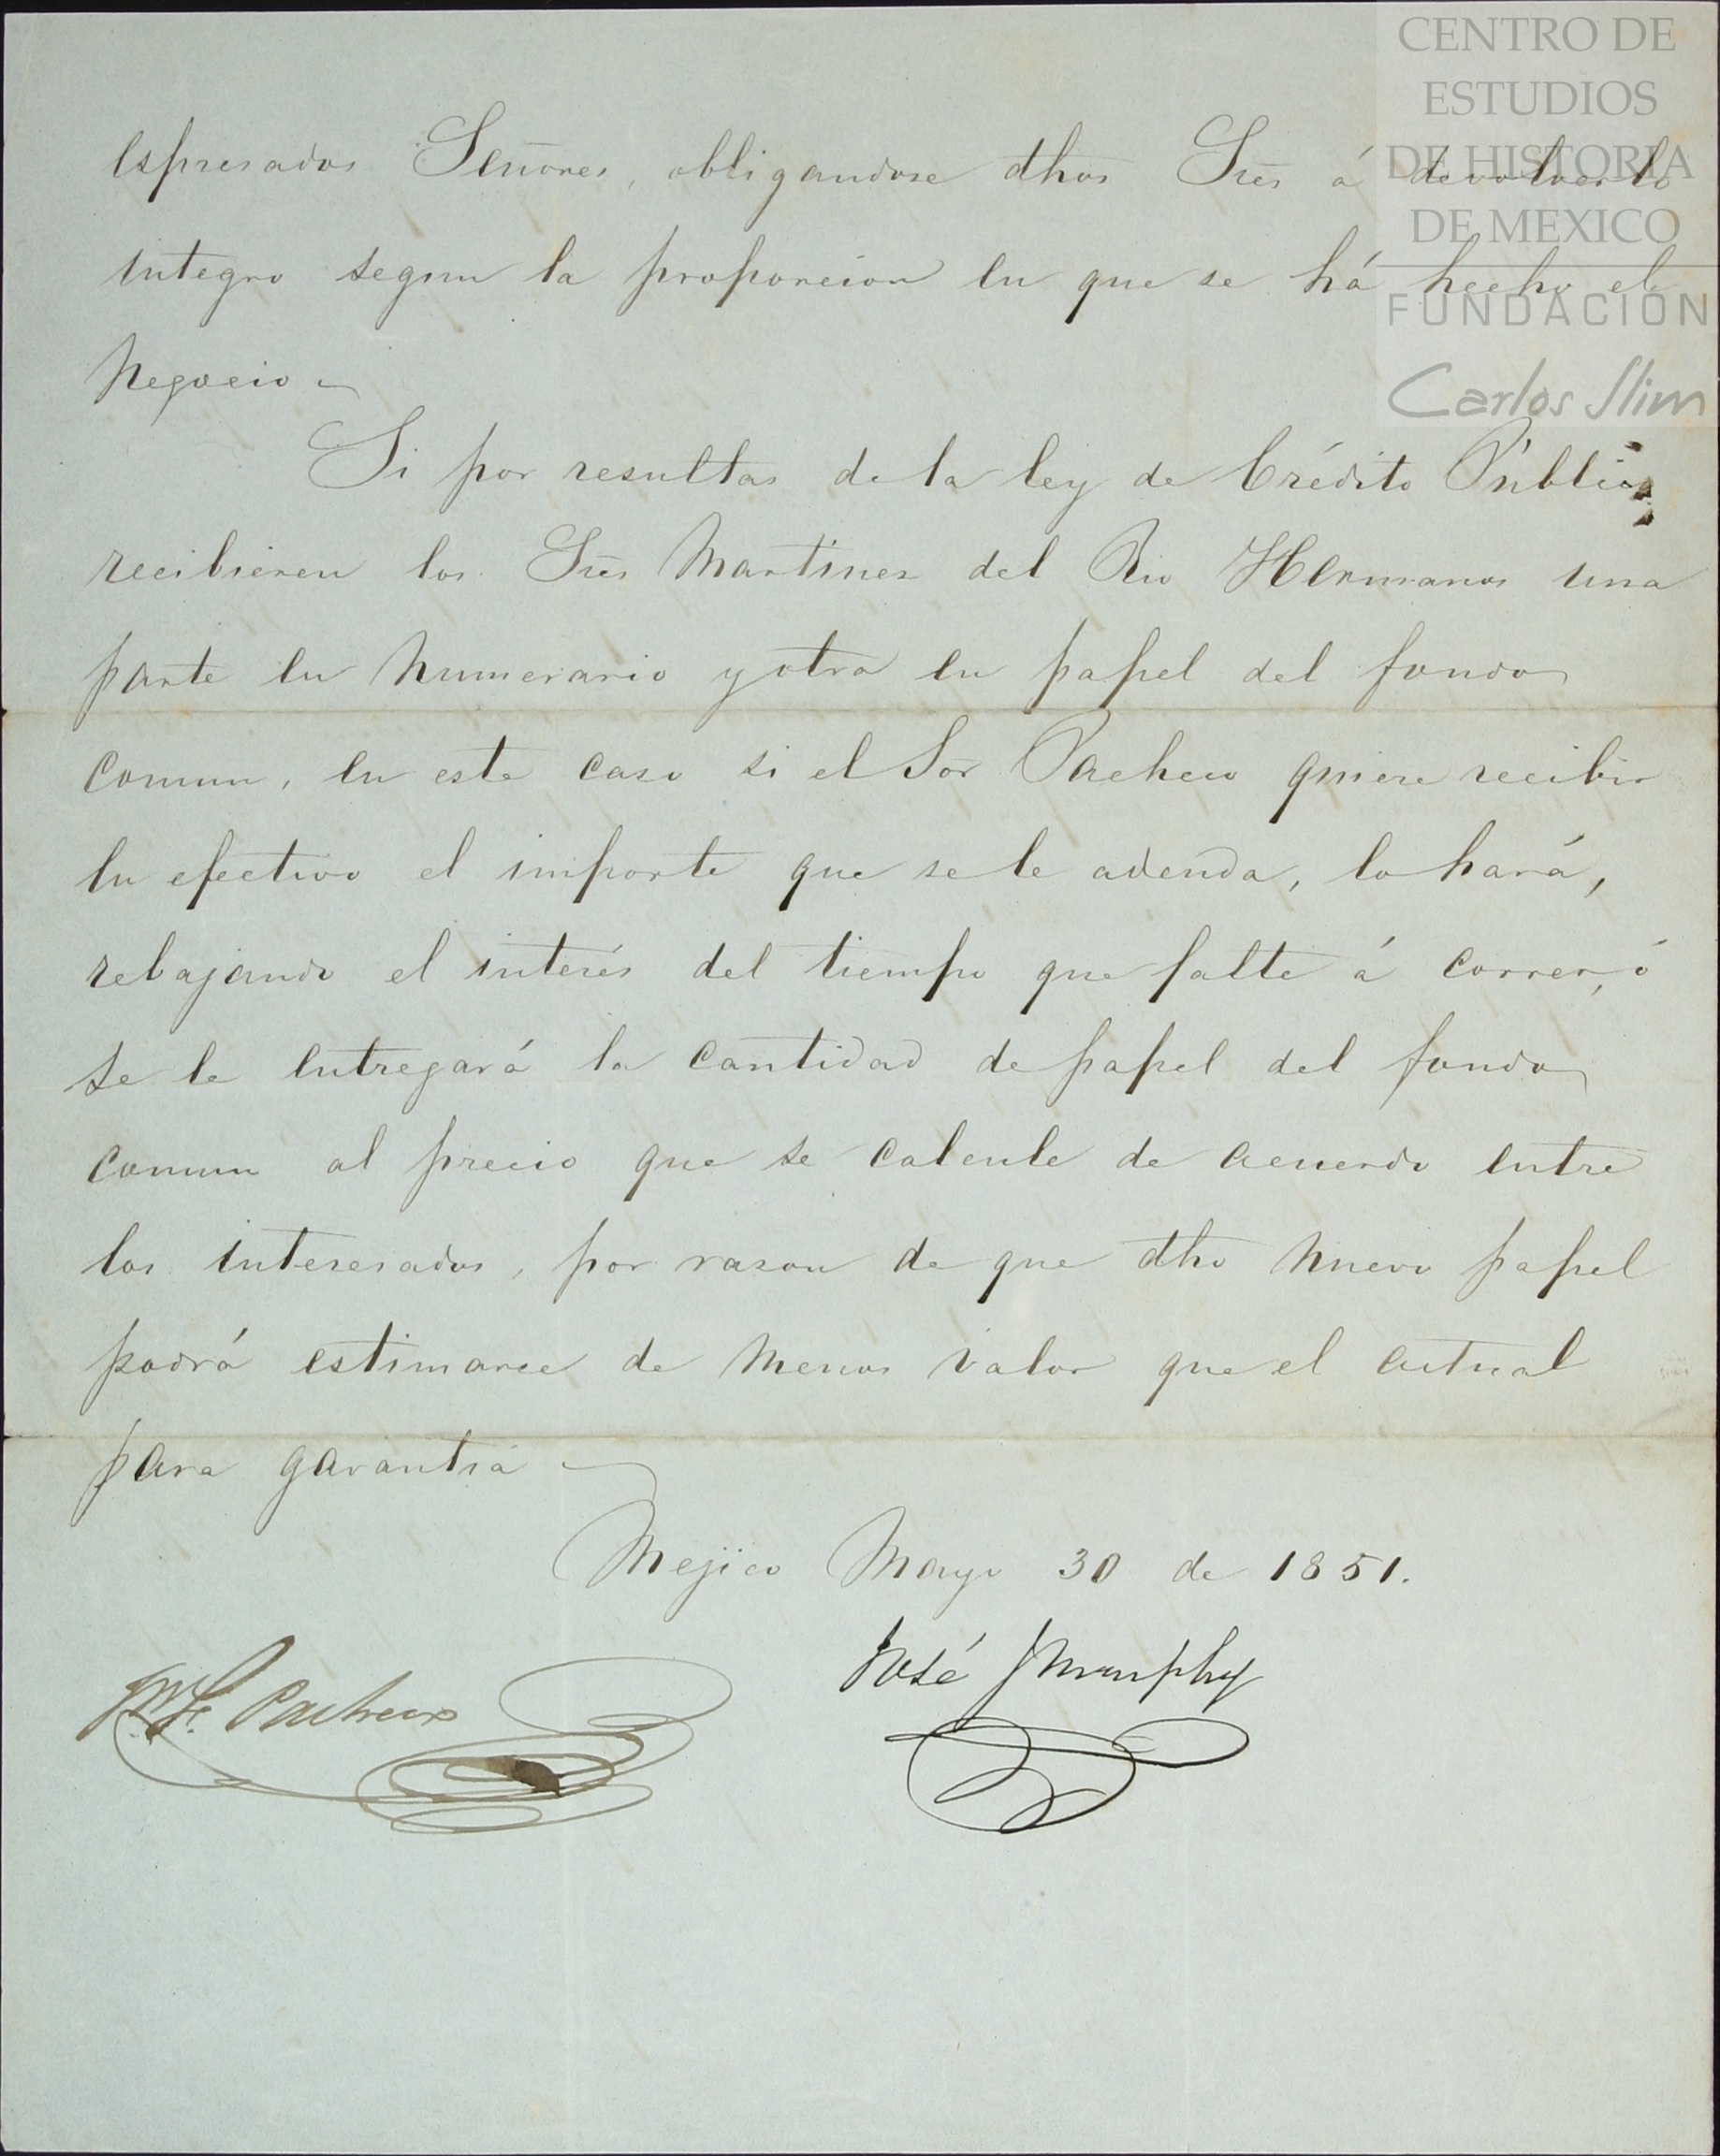 CENTRO DE
ESTUDIOS
DE HISTORIA
DE MEXICO
FUNDACIÓN
Carlos Slim
espresados Señores, obligandose dhos Sres á devolverlo
integro segun la proporcion en que se há hecho el
negocio
Si por resultas de la ley de Crédito Público
recibieren los Sres Martinez del Rio Hermanos una
parte en numerario y otra en papel del fondo
comun, en este caso si el Sor Pacheco quiere recibir
en efectivo el importe que se le adeuda, lo hará,
rebajando el interés del tiempo que falte á correr, ó
se le entregará la cantidad de papel del fondo
comun al precio que se calcule de acuerdo entre
los interesados, por razon de que dho nuevo papel
podrá estimarce de menos valor que el actual
para garantia
Mejico Mayo 30 de 1851.
Pacheco
José J Murphy